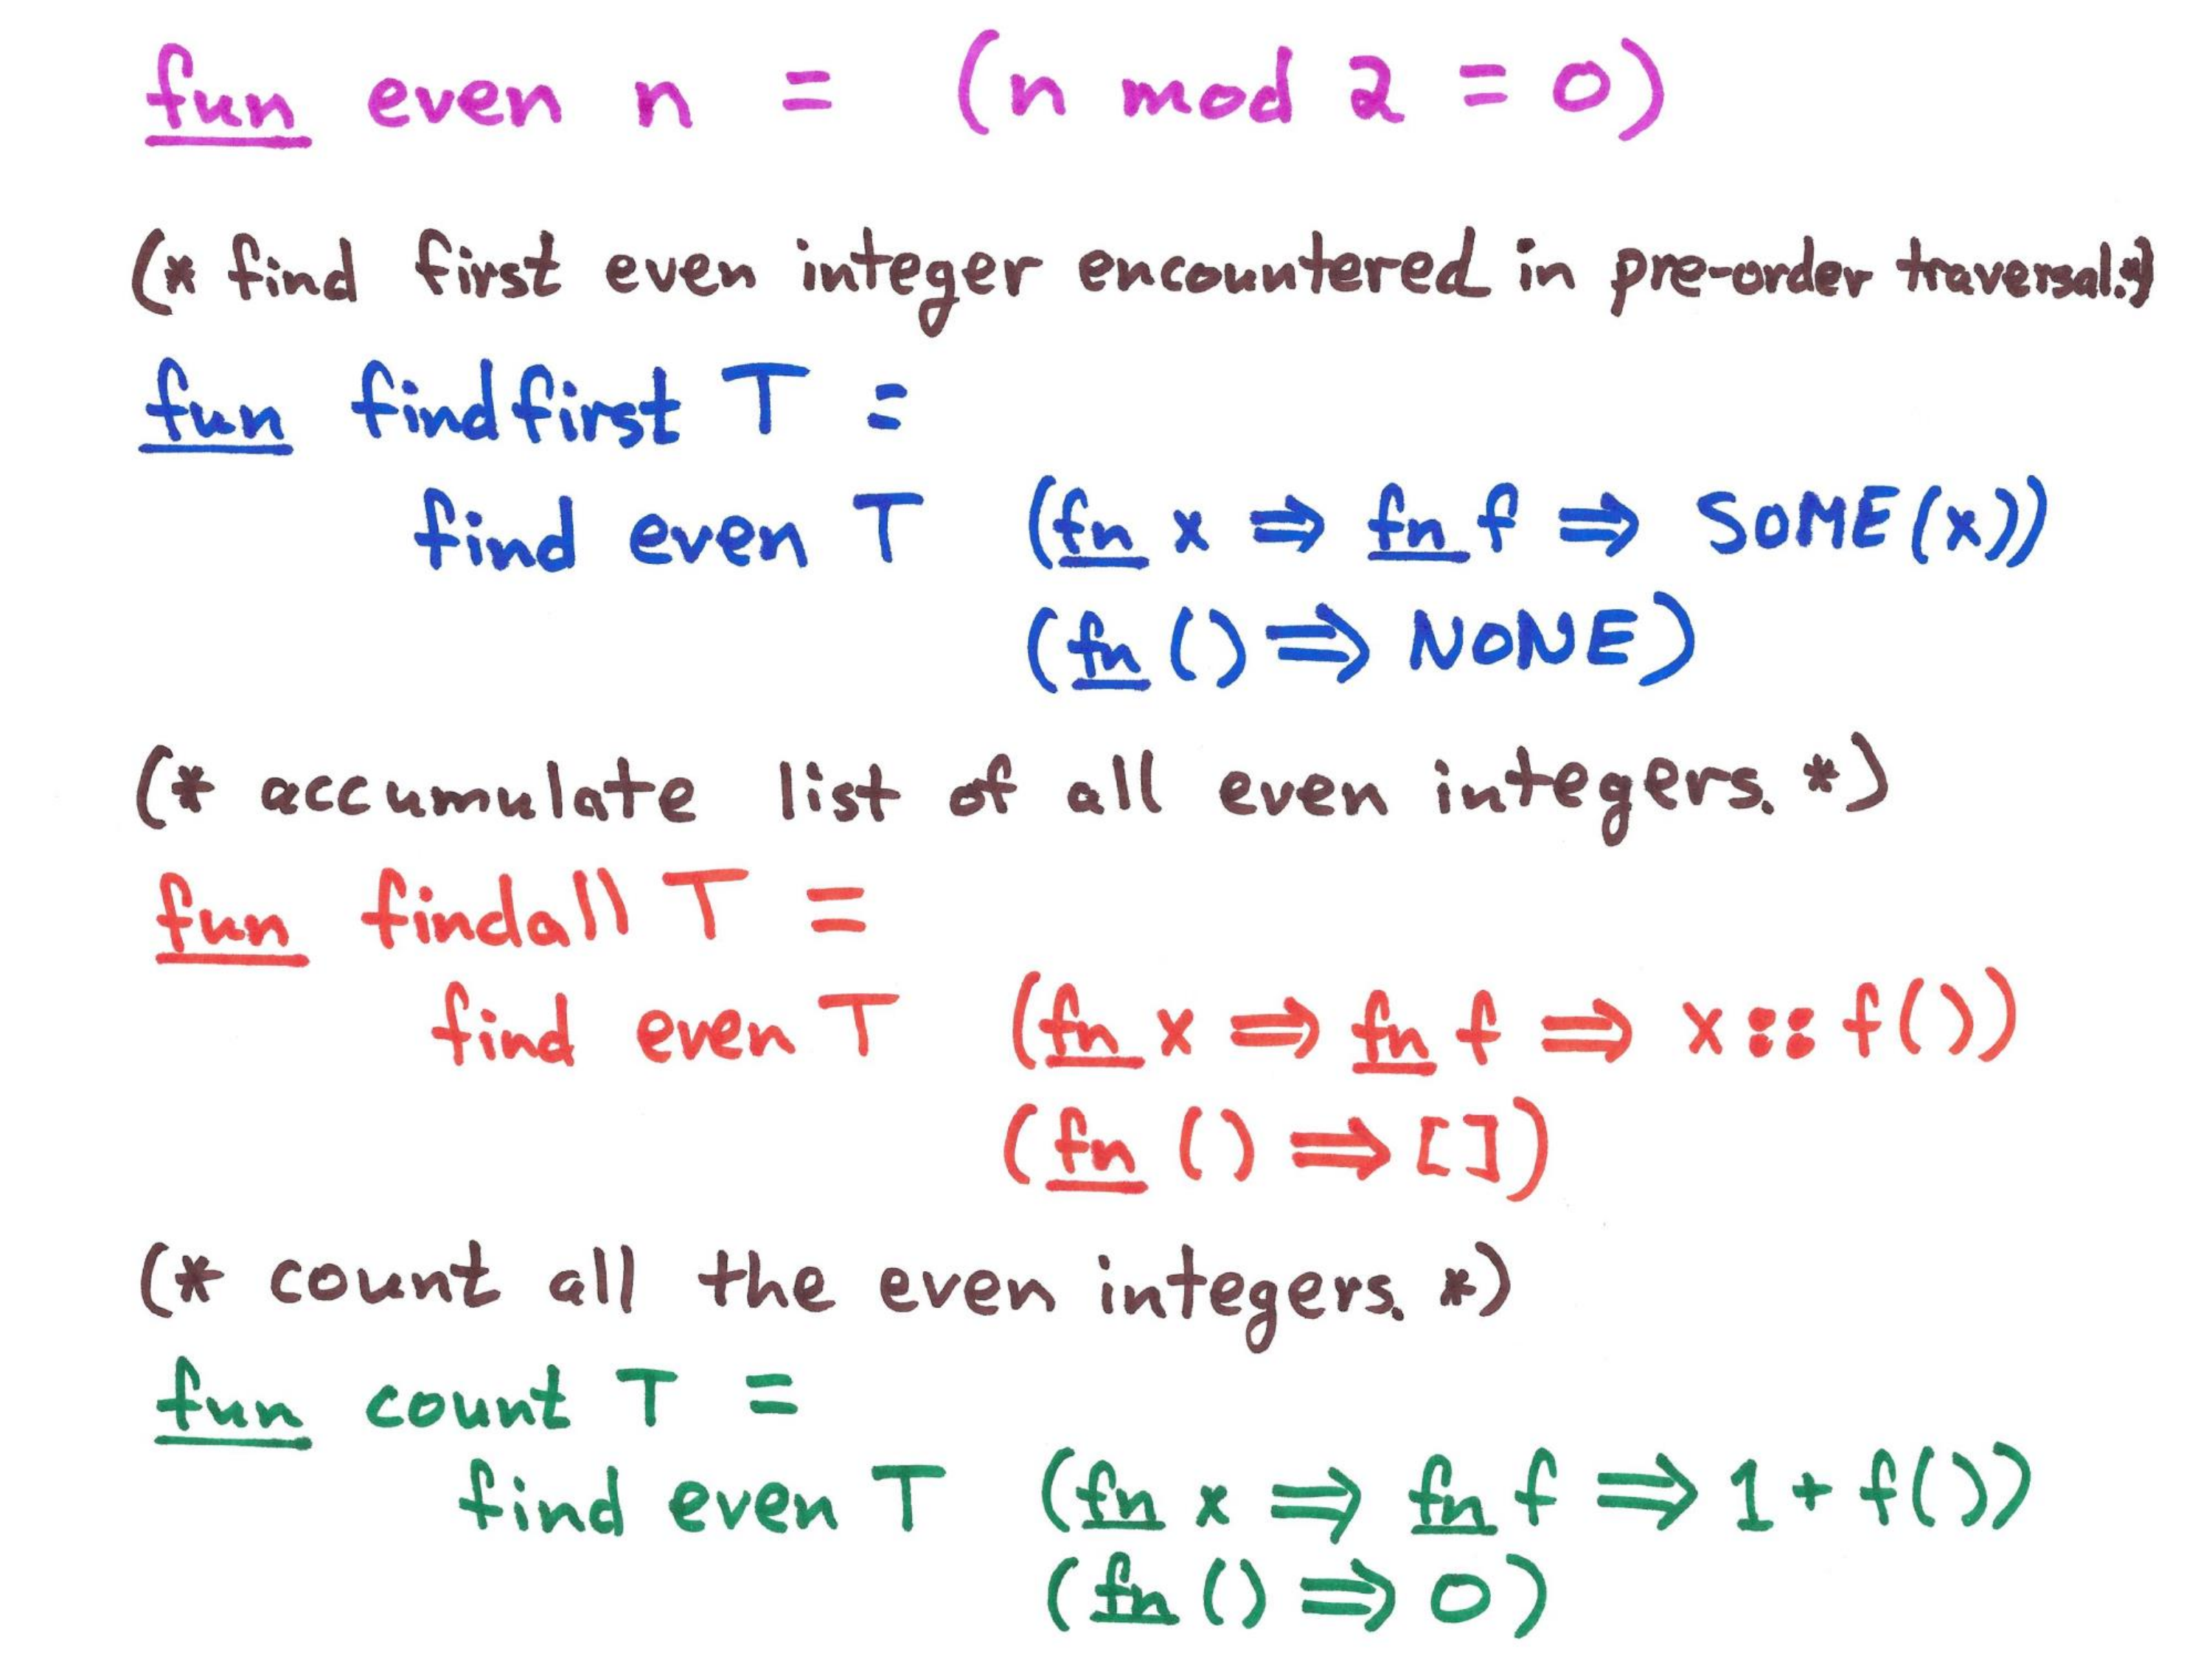 fun even n = (n mod 2 = 0)
(* find first even integer encountered in pre-order traversal.*)
fun findfirst T =
find even T (fn x ⇒ fn f ⇒ SOME(x))
(fn () ⇒ NONE)
(* accumulate list of all even integers. *)
fun findall T =
find even T (fn x ⇒ fn f ⇒ x::f())
(fn () ⇒ [])
(* count all the even integers. *)
fun count T =
find even T (fn x ⇒ fn f ⇒ 1 + f())
(fn () ⇒ 0)